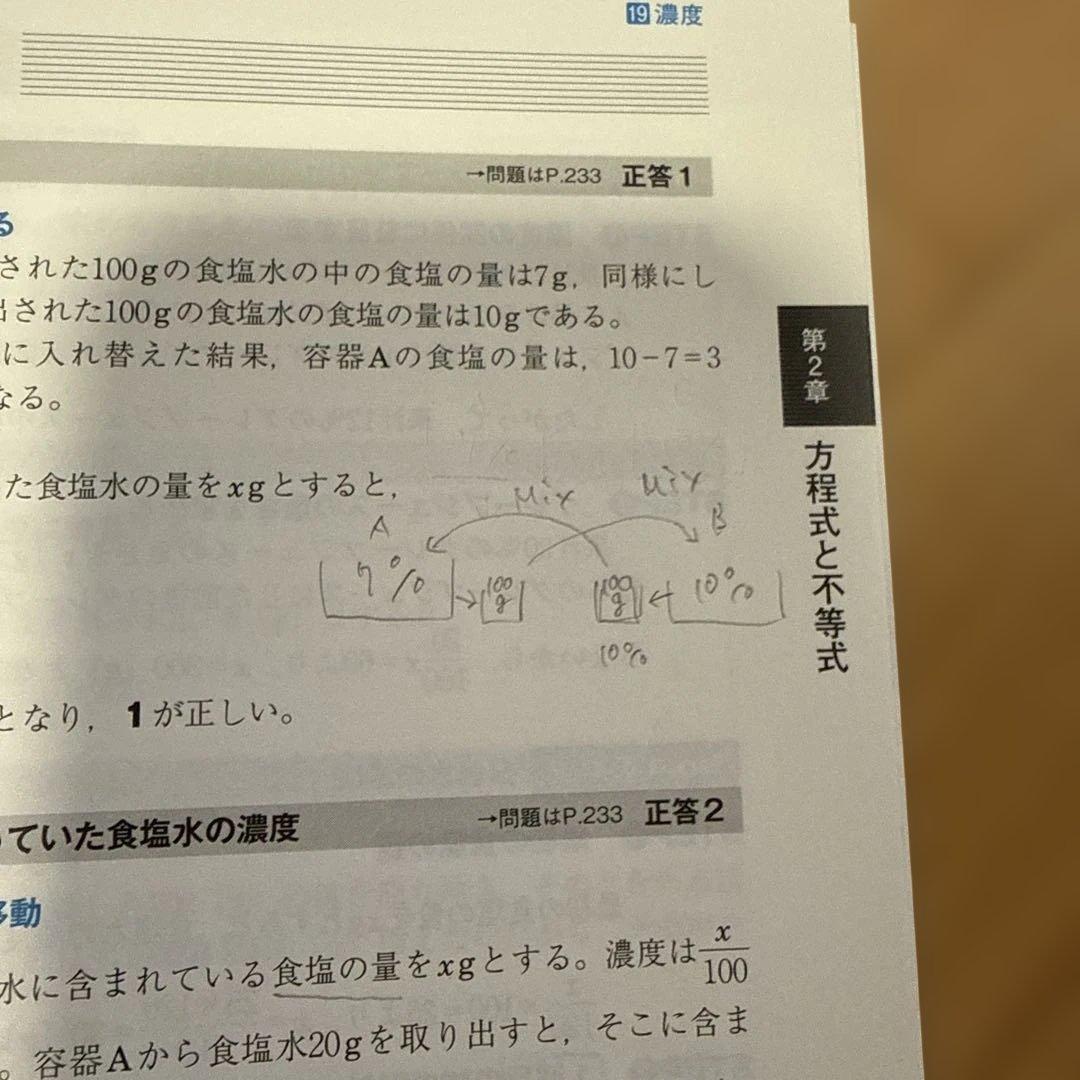 19 濃度
→問題はP.233 正答1
る
された100gの食塩水の中の食塩の量は7g，同様にし
出された100gの食塩水の食塩の量は10gである。
に入れ替えた結果，容器Aの食塩の量は，10−7=3
なる。
た食塩水の量をxgとすると，
Mix Mix
A B
7% 100g 100g 10%
10%
となり，1が正しい。
っていた食塩水の濃度 →問題はP.233 正答2
移動
水に含まれている食塩の量をxgとする。濃度はx/100
。容器Aから食塩水20gを取り出すと，そこに含ま
第2章
方程式と不等式